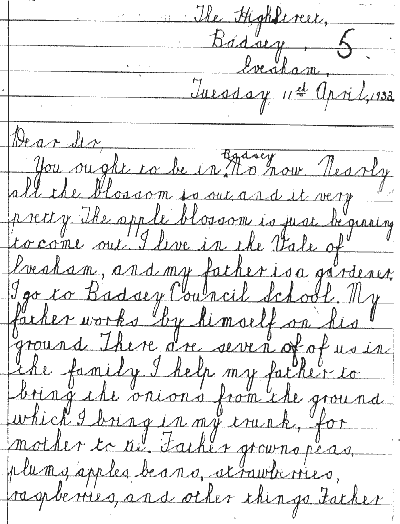 The High Street,
Badsey, 5
Evesham,
Tuesday 11st April, 1932
Dear Sir,
Badsey
You ought to be in No now. Nearly
all the blossom is out and it very
pretty. The apple blossom is just beginning
to come out. I live in the Vale of
Evesham, and my father is a gardener,
I go to Badsey Council School. My
father works by himself on his
ground. There are seven of of us in
the family I help my father to
bring the onions from the ground
which I bring in my trunk, for
mother to tie. Father growns peas,
plums, apples beans, strawberries,
raspberries, and other things. Father